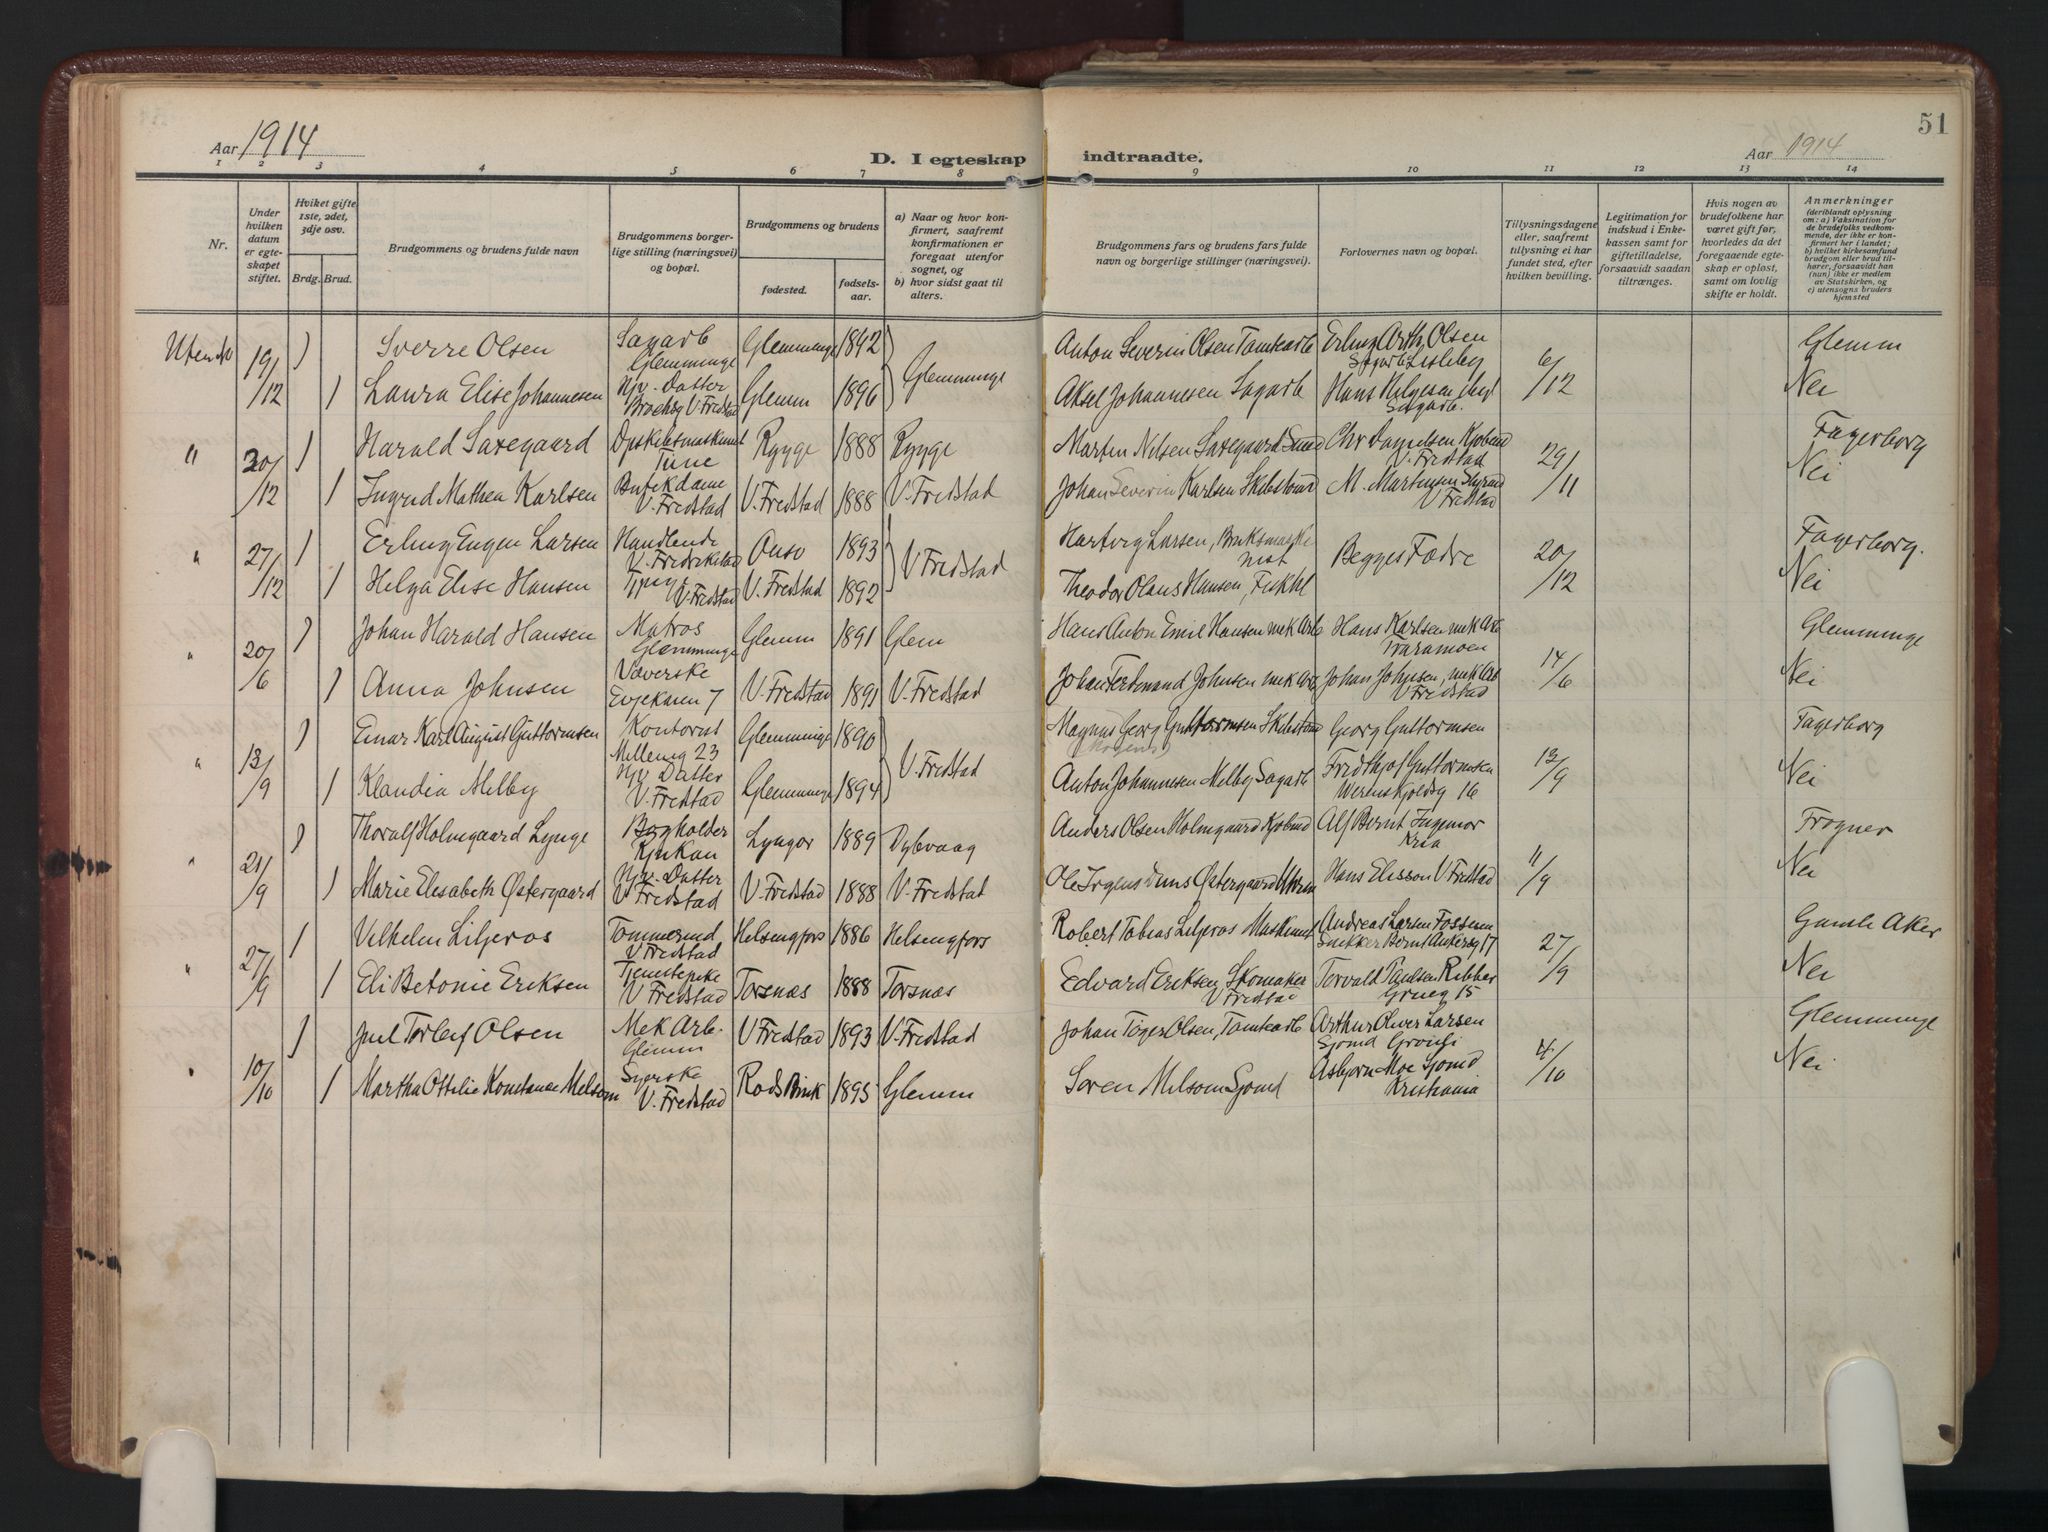 51
Aar 1914
D. I egteskap indtraadte.
Aar 1914
1 2 3 4 5 6 7 8 9 10 11 12 13 14
Nr.
Under hvilken datum er egteskapet stiftet.
Hviket gifte 1ste, 2det, 3dje osv.
Brdg. Brud.
Brudgommens og brudens fulde navn
Brudgommens borgerlige stilling (næringsvei) og bopæl.
Brudgommens og brudens
fødested.
fødselsaar.
a) Naar og hvor konfirmert, saafremt konfirmationen er foregaat utenfor sognet, og
b) hvor sidst gaat til alters.
Brudgommens fars og brudens fars fulde navn og borgerlige stillinger (næringsvei).
Forlovernes navn og bopæl.
Tillysningsdagene eller, saafremt tillysning ei har fundet sted, efter hvilken bevilling.
Legitimation for indskud i Enkekassen samt for giftetilladelse, forsaavidt saadan tiltrænges.
Hvis nogen av brudefolkene har været gift før, hvorledes da det foregaaende egteskap er opløst, samt om lovlig skifte er holdt.
Anmerkninger
(deriblandt oplysning om: a) Vaksination for de brudefolks vedkommende, der ikke er konfirmert her i landet; b) hvilket kirkesamfund brudgom eller brud tilhører, forsaavidt han (hun) ikke er medlem av Statskirken, og c) utensogns bruders hjemsted
19/12 1 Sverre Olsen Sagarb Glemminge Glemminge 1892 Glemminge Anton Severin Olsen Tomtearb Erling Arth. Olsen Sagarb Lisleby 6/12 Glemm
1 Laura Elise Johannesen Njv. Datter V. Fredstad Glemm 1896 Aksel Johannesen Sagarb Hans Helgesen Sagarb. Nei
" 20/12 1 Harald Saxegaard Tune Rygge 1888 Rygge Marten Nilsen Saxegaard Chr Danielsen Kjøbmd V. Fredstad 29/11 Fagerborg
1 Ingrid Mathea Karlsen V. Fredstad V. Fredstad 1888 V. Fredstad Johan Severin Karlsen Skibstømd M. Martinsen Styrmd V Fredstad Nei
" 27/12 1 Erling Eugen Larsen Handlende V. Fredrikstad Onsø 1893 V Fredstad Hartvig Larsen, Bruksmaskinist Begges Fædre 20/12 Fagerborg.
1 Helga Elise Hansen V. Fredstad V. Fredstad 1892 Theodor Olaus Hansen, Nei
" 20/6 1 Johan Harald Hansen Matros Glemminge Glemm 1891 Glem Hans Anton Emil Hansen mek Arb Hans Karlsen mek Arb Traramoen 14/6 Glemminge
1 Anna Johnsen Væverske Evjekaien 7 V. Fredstad 1891 V. Fredstad Johan Ferdinand Johnsen mek Arb Johan Johnsen, mek Arb V Fredstad Nei
" 13/9 1 Einar Karl August Guttormsen Kontorist Mellemg 23 Glemminge 1890 V. Fredstad Magnus Georg Guttormsen Skibstømd Georg Guttormsen 13/9 Fagerborg
1 Klaudia Melby Njv Datter V. Fredstad Glemminge 1894 Anton Johannesen Melby Sagarb Fridthjof Guttormsen Werenskjoldsg 16 Nei
" 21/9 1 Thoralf Holmgaard Lynge Bogholder Rjukan Lyngør 1889 Dybvaag Anders Olsen Holmgaard Kjøbmd Alf Bernt Ingeniør Kria 11/9 Frogner
1 Marie Elisabeth Østergaard Njv. Datter V Fredstad V. Fredstad 1888 V. Fredstad Ole Jrgens Østergaard Hans Elisson V Fredstad Nei
" 27/9 1 Vilhelm Liljeros Tømmermd V Fredstad Helsingfors 1886 Helsingfors Robert Tobias Liljeros Maskinist Andreas Larsen Fossum Snekker Bernt Ankersg 17 27/9 Gamle Aker
1 Eli Betonie Eriksen Tjenestepike V Fredstad Torsnæs 1888 Torsnæs Edvard Eriksen, Skomaker V Fredstad Torvald Paulsen Grueg 15 Nei
" 10/10 1 Juel Torleif Olsen Mek Arb. Glemm V Fredstad 1893 V. Fredstad Johan Tøger Olsen, Tomtearb Arthur Oliver Larsen Sjømd 4/10 Glemminge
1 Martha Ottilie Konstanse Melsom Syerske V. Fredstad 1895 Glemm Søren Melsom Sjømd Asbjørn Moe Sjømd Kristiania Nei